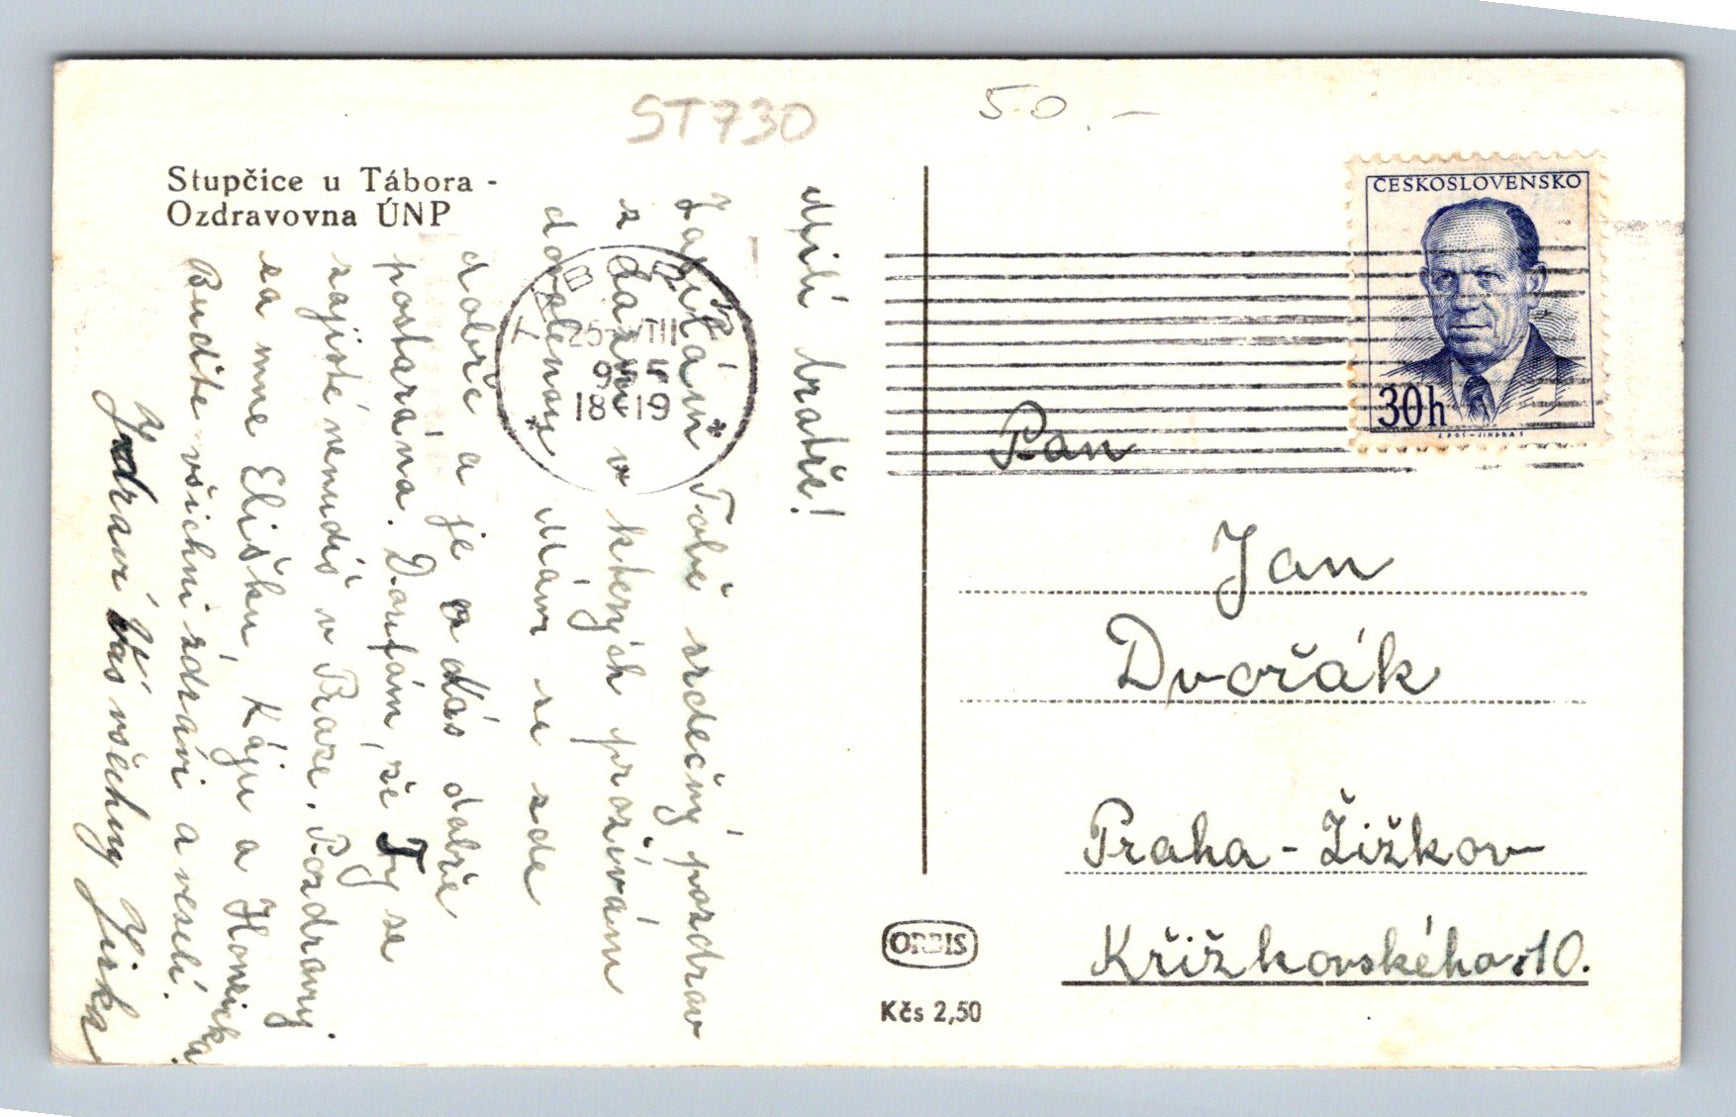 ST730
50.-
Stupčice u Tábora -
Ozdravovna ÚNP
Milí bratře!
Zasílám Tobě srdečný pozdrav
z dažin v kterých prožívám
dovolenou Mám se zde
dobře a je o dás dobře
postarána. Doufám, že Ty se
zajisté nenudíš v Praze. Pozdravuj
za mne Elišku, Káju a Honzíka
Buďte všichni zdrávi a veselí.
Zdraví Vás všechny Jirka
TÁBOR 1
25.VIII
955
18-19
ČESKOSLOVENSKO
30h
Pan
Jan
Dvořák
Praha - Žižkov
Křižkovského 10.
ORBIS
Kčs 2,50